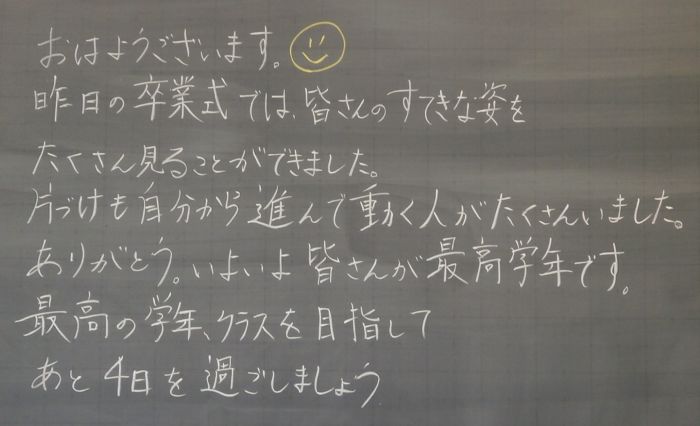 おはようございます。
昨日の卒業式では、皆さんのすてきな姿を
たくさん見ることができました。
片づけも自分から進んで動く人がたくさんいました。
ありがとう。いよいよ皆さんが最高学年です。
最高の学年、クラスを目指して
あと4日を過ごしましょう